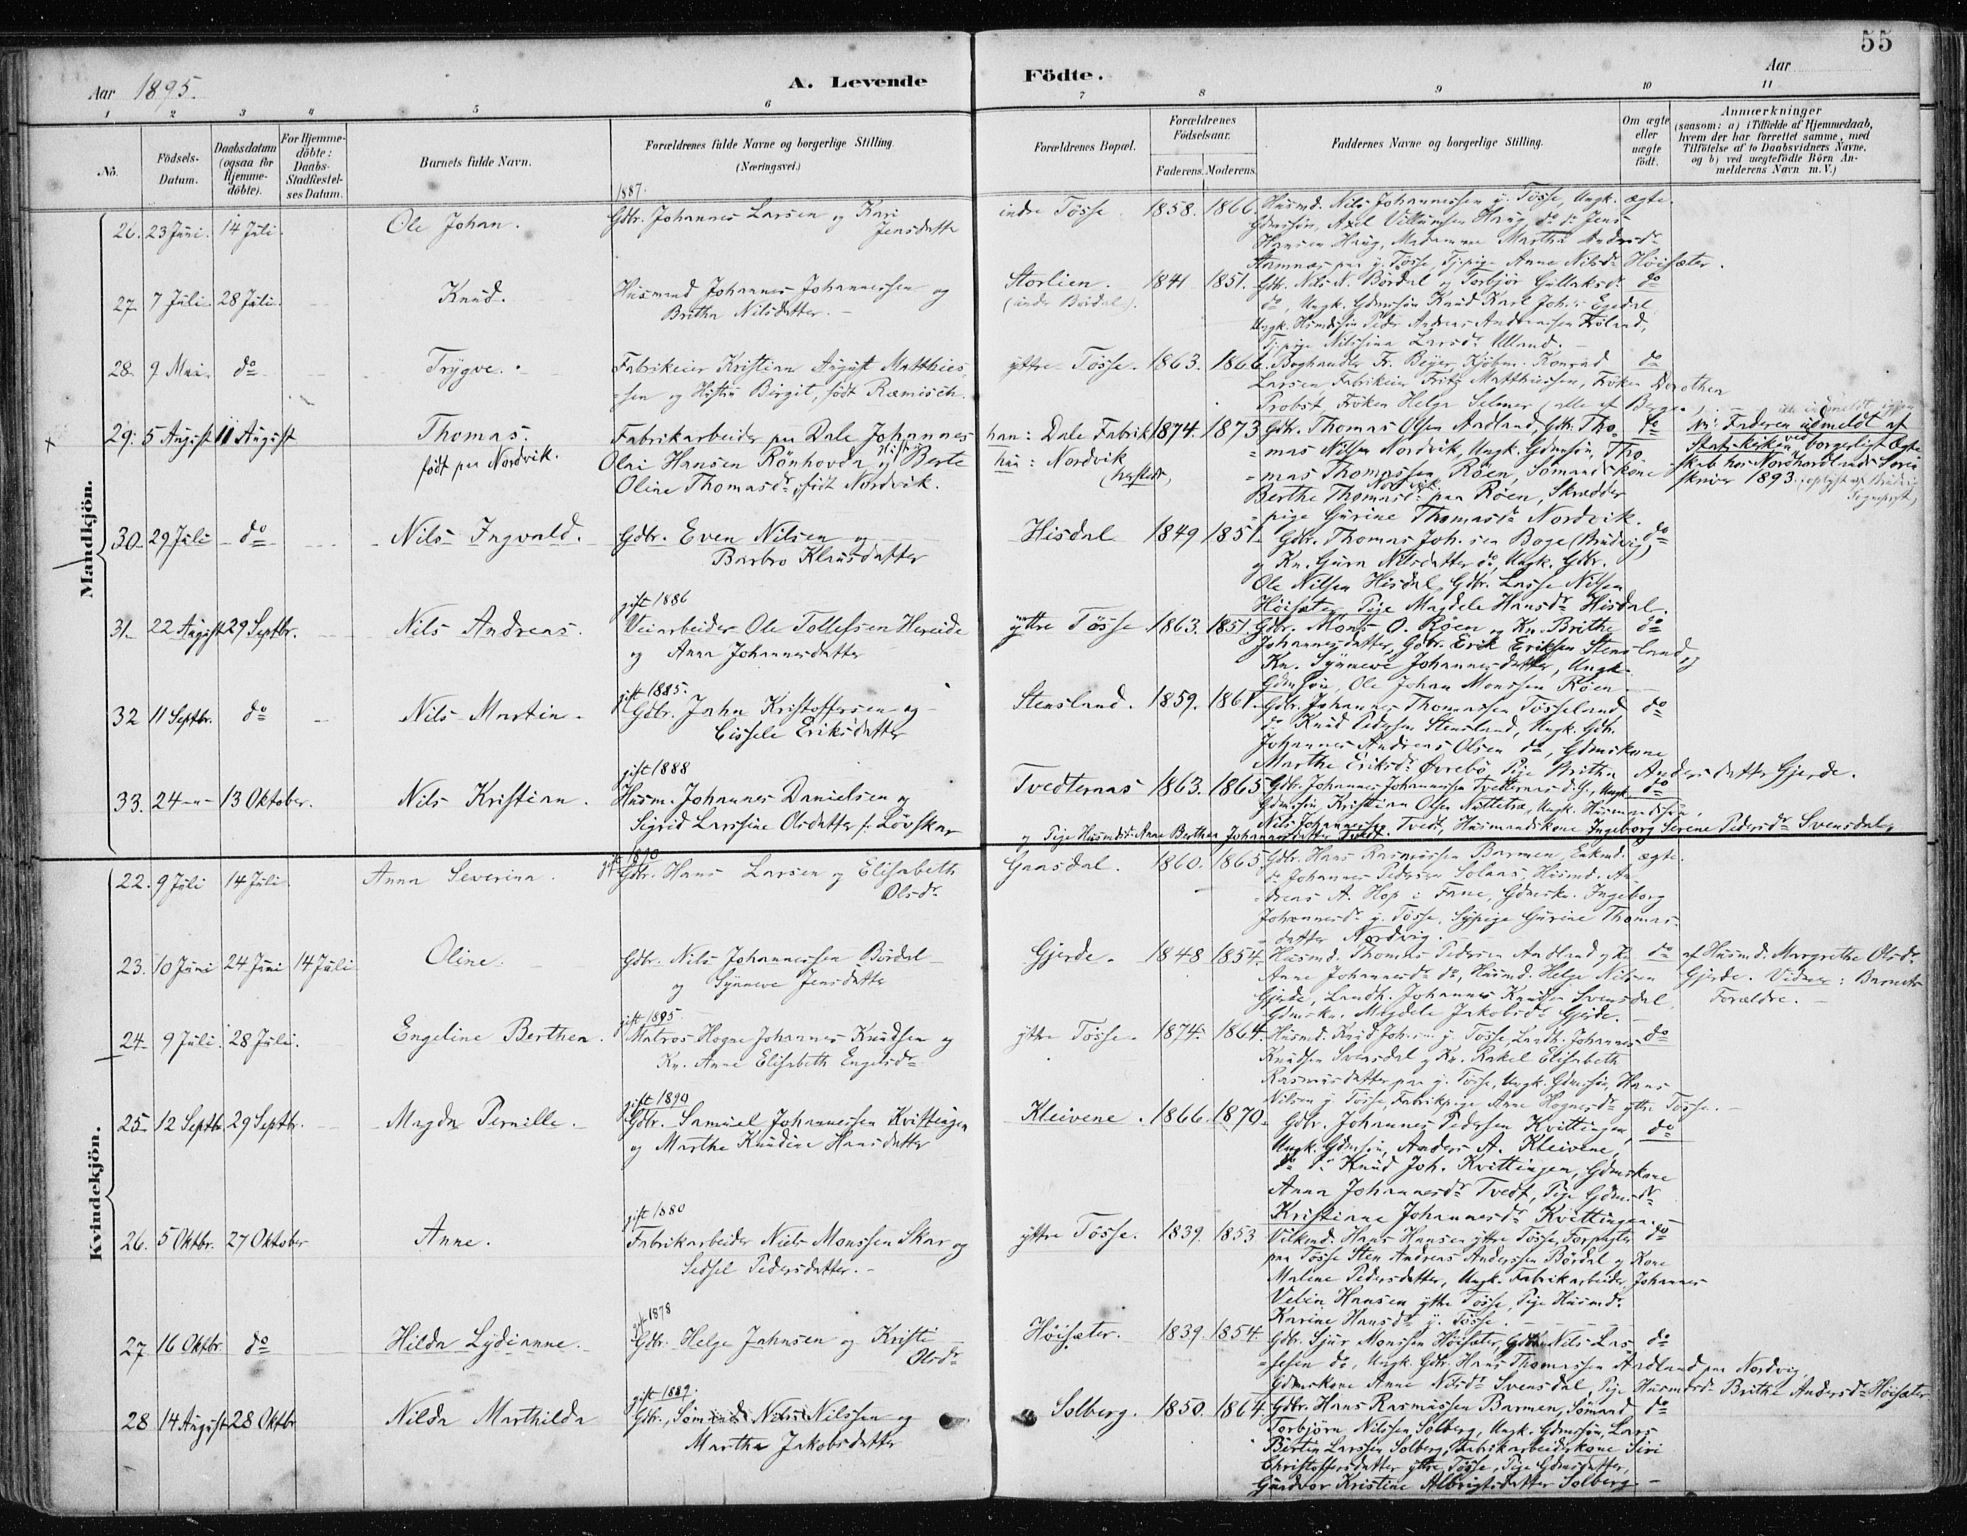 55
Aar 1895.
A. Levende Födte.
Aar
1 2 3 4 5 6 7 8 9 10 11
No.
Födsels-Datum.
Daabsdatum (ogsaa for Hjemme-döbte).
For Hjemme-döbte: Daabs-Stadfæstel-ses Datum.
Barnets fulde Navn.
Forældrenes fulde Navne og borgerlige Stilling. (Næringsvei.)
Forældrenes Bopæl.
Forældrenes Födselsaar.
Faderens. Moderens.
Faddernes Navne og borgerlige Stilling.
Om ægte eller uægte födt.
Anmærkninger
(saasom: a) i Tilfælde af Hjemmedaab,
hvem der har forrettet samme, med
Tilföielse af to Daabsvidners Navne,
og b) ved uægtefödte Börn An-
melderens Navn m. V.)
Mandkjön.
26. 23 Juni. 14 Juli. Ole Johan.
1887.
Gdbr. Johannes Larsen og Kari
Jensdatter
indre Tösse. 1858. 1866.
Husmd. Nils Johannessen y. Tösse, Ungk. ægte.
Hansen Haug, Madamme Martha
paa y. Tösse, Anne Nilsdr Höisæter.
27. 7 Juli. 28 Juli. Knud.
Husmand Johannes Johannessen og
Britha Nilsdatter.
Storlien. (indre Bördal). 1841 1851.
Gbr. Nils N. Bördal og Torbjör Gullaksdr do
do, Ungk. Gdmssön Knud Karl Joh. Egedal,
Ungk. Husmdssön Peder Andreas Andreassen Fröland,
Pige Nilsina Larsdr Ulland.
28. 9 Mai. do Trygve.
Fabrikeier Kristian August Matthies-
-sen og Hustru Birgit, født Ræmisch.
yttre Tösse. 1863. 1866.
Boghandler Fr. Beyer, Kjöbm. Konrad do
Larsen, Fabrikeier Fritz Matthiessen, Fröken Dorothea
Probst, Fröken Helga Selmer (alle af Bergen).
29. 5 August 11 August Thomas.
født paa Nordvik.
Fabrikarbeider paa Dale Johannes
Olai Hansen Rönhovda og Hustru Berte
Oline Thomasdr født Nordvik.
han: Dale Fabrik
hun: Nordvik
1874. 1873
Gdbr. Thomas Olsen Aadland, Gbr. Tho-
=mas Nilsen Nordvik, Ungk. Gdmssön, Tho-
=mas Thomassen Röen, Sömandskone
Berthe Thomasdr Nordvik paa Röen, Skrædder
=pige Gurine Thomasdr Nordvik.
Faderen udmeldt af
Statskirken ved borgerligt Ægte-
skab hos Nordhordlands Soren-
skriver 1893.
30. 29 Juli do Nils Ingvald.
Gdbr. Even Nilsen og
Barbro Klausdatter
Hisdal 1849 1851
Gdbr. Thomas Joh.sen Boge (Bruvig), do
og Kn. Guro Nilsdatter do, Ungk. Gdbr.
Ole Nilsen Hisdal, Gdbr. Lasse Nilsen
Höisæter, Pige Magdele Hansdr Hisdal.
31. 22 August 29 Septbr. Nils Andreas.
gift 1886
Veiarbeider Ole Tollefsen Hereide
og Anna Johannesdatter
yttre Tösse 1863. 1851
Gdbr. Mons O. Röen og Kn. Brithe do
Johannesdatter, Gdbr. Erik Eriksen Stensland, og
Kn. Synneve Johannesdatter, Ungk.
Gdmssön, Ole Johan Monssen Röen
32 11 Septbr. do Nils Martin.
gift 1885.
Gdbr. John Kristoffersen og
Cissele Eriksdatter
Stensland. 1859. 1861.
Gdbr. Johannes Thomassen Tösseland do
do Knud Pedersen Stensland, Ungk. Gdbr.
Johannes Andreas Olsen do, Gdmskone
Marthe Eriksdr Övrebö, Pige Britha Andersdatter Gjerde.
33. 24 -"- 13 Oktober. Nils Kristian.
gift 1888
Husm. Johannes Danielsen og
Sigrid Larssine Olsdatter f. Lövskar
Tvedternas 1863. 1865
Gdbr. Johannes Johannessen Tvedternas d.y., Ungk. do
Gdmssön, Kristian Olsen Nottetræ, Ungk. Husmandssön,
Nils Johannessen Tvedt, Husmandskone Ingeborg Serene Pedersdr Svensdal,
og Pige Husmdsdr Anne Berthea Johannesdatter Tvedt.
Kvindekjön.
22. 9 Juli 14 Juli. Anna Severina.
gift 1890
Gdbr. Hans Larsen og Elisabeth
Olsdr
Gaasdal. 1860. 1865.
Gdbr. Hans Rasmussen Barmen, Enkmd. ægte.
do Johannes Pedersen Solaas, Husmd. An-
=dreas A. Hop i Fane, Gdmsko. Ingeborg
Johannesdr y. Tösse, Sypige Gurine Thomas-
=datter Nordvig.
23. 10 Juni 24 Juni 14 Juli. Oline.
Gdbr. Nils Johannessen Bördal
og Synneve Jensdatter
Gjerde. 1848 1854.
Husmd. Thomas Pedersen Aadland og Kn. do
Anne Johannesdr do, Husmd. Helge Nilsen
Gjerde, Landh. Johannes Knudsen Svensdal,
Gdmskn. Magdele Jakobsdr Gjerde.
af Husmd. Margrethe Olsdr
Gjerde. Vidner: Barnets
Forældre.
24. 9 Juli. 28 Juli. Engeline Berthea.
gift 1895
Matros Hogne Johannes Knudsen og
Kn. Anne Elisabeth Engelsdr
yttre Tösse. 1874. 1864.
Husmd. Knud Joh.sen y. Tösse, Landh. Johannes do
Knudsen Svensdal og Kn. Rakel Elisabeth
Rasmusdatter paa y. Tösse, Ungk. Gdmssön, Hans
Nilsen y. Tösse, Fabrikpige Anne Hognesdr yttre Tösse.
25. 12 Septbr 29 Septbr. Magda Pernille.
gift 1890
Gdbr. Samuel Johannessen Kvittingen
og Marthe Knudine Hansdatter
Kleivene. 1866. 1870.
Gdbr. Johannes Pedersen Kvittingen, do
Ungk. Gdmssön, Anders A. Kleivene,
do do Knud Joh. Kvittingen, Gdmskone
Anna Johannesdr Tvedt, Pige Gdmsdr
Kristianne Johannesdr Kvittingen.
26. 5 Oktbr. 27 Oktober Anne.
gift 1880
Fabrikarbeider Niels Monssen Skar og
Sedsel Pedersdatter.
yttre Tösse. 1839. 1853
Vilkmd. Hans Hansen yttre Tösse, Forpagter do
paa Tösse Sten Andreas Anderssen Bördal og Kone
Maline Pedersdatter, Ungk. Fabrikarbeider Johannes
Velin Hansen yttre Tösse, Pige Husmd.
Karine Hansdr y. Tösse.
27 16 Oktbr. do Hilda Lydianne.
gift 1878
Gdbr. Helge Johnsen og Kristi
Olsdr
Höisæter. 1839. 1854.
Gdbr. Sjur Monssen Höisæter, Gdbr. Nils Las- do
=sesen do, Ungk. Gdbr. Hans Thomassen Aadland paa Nordvig,
Gdmskone Anne Nilsdr Svensdal, Pige Husmdsdr Brithe Andersdr Höisæter
28 14 August 28 Oktbr Nilda Marthilda
gift 1889.
Gdbr., Sömand Nils Nilssen og
Martha Jakobsdatter
Solberg. 1850. 1864.
Gdbr. Hans Rasmussen Barmen, Sömand do
Torbjörn Nilssen Solberg, Ungk. Gdmssön, Lars
Bertin Larssen Solberg, Fabrikarbeiderkone Siri
Christoffersdatter yttre Tösse, Pige Gdmsdatter,
Gurdvor Kristine Albrigtsdatter Solberg